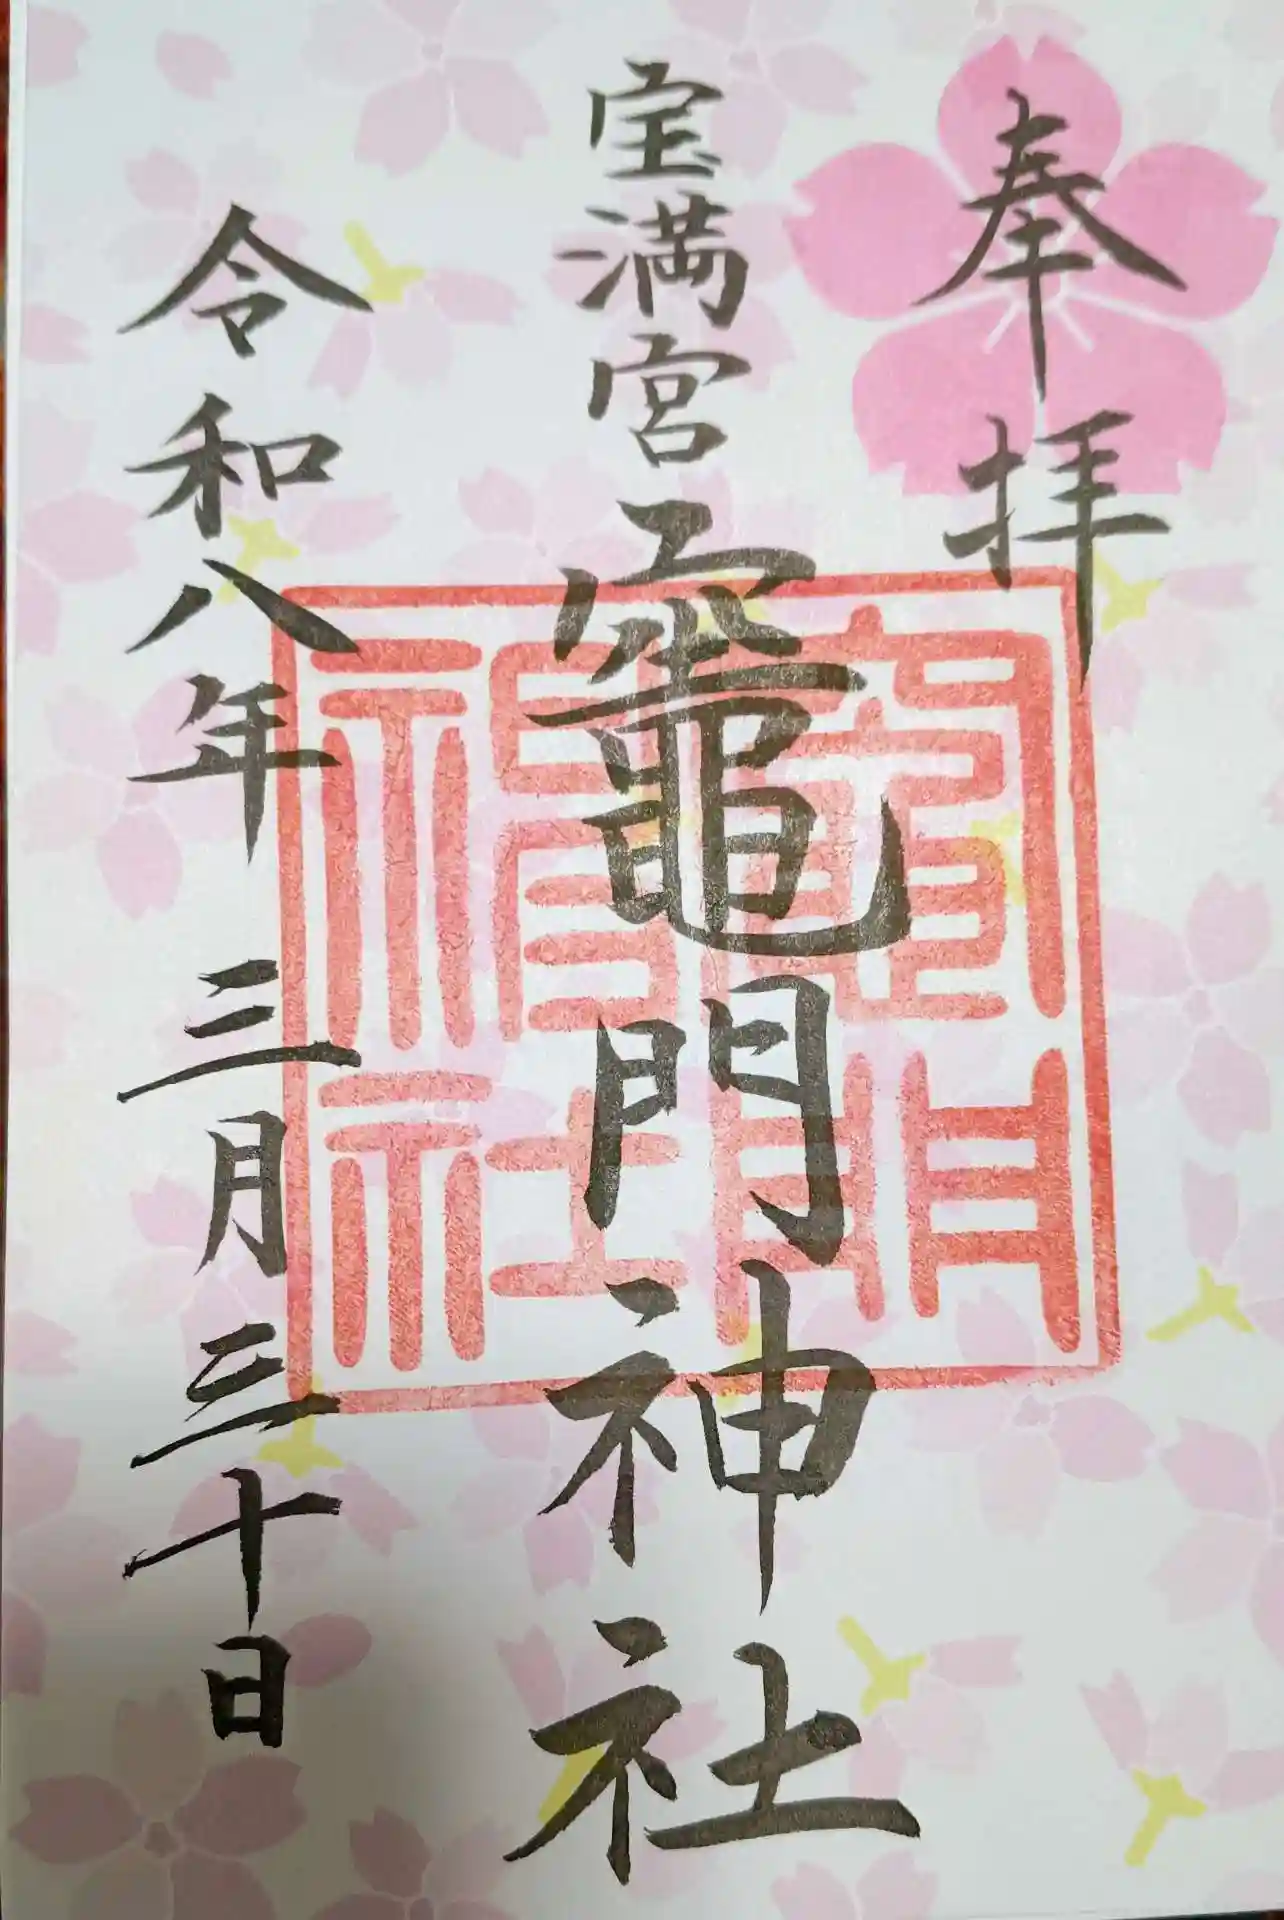 奉拝
宝満宮
竈門神社
令和八年三月三十日